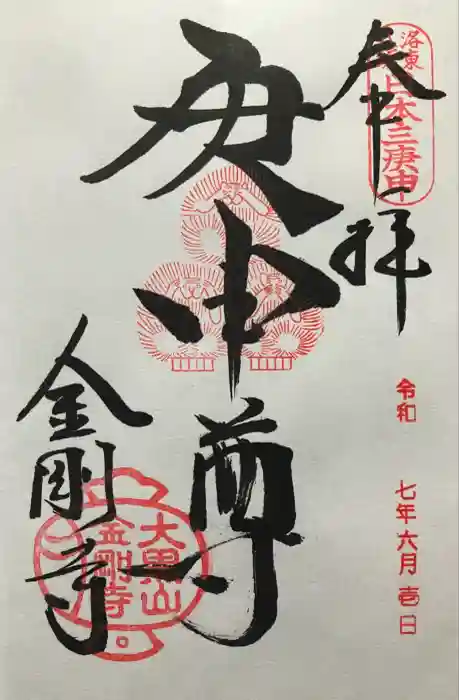 奉拝
洛東
日本三庚申
令和 七年六月壱日
庚申尊
金剛寺
大黒山
金剛寺